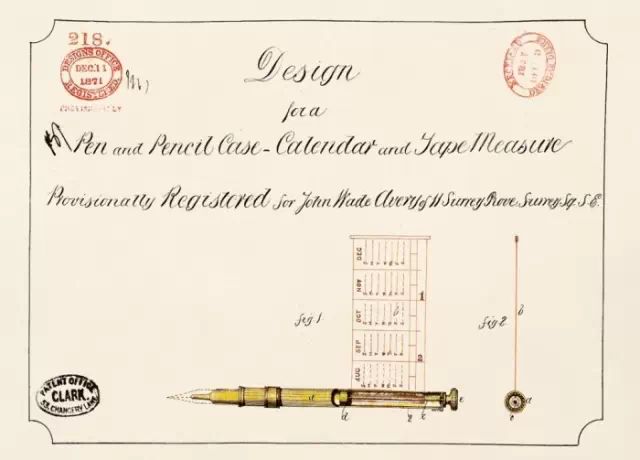 218.
DESIGNS OFFICE
DEC. 11
1871
REGISTERED.
PROVISIONALLY
Design
for a
Pen and Pencil Case - Calendar and Tape Measure
Provisionally Registered for John Wade Avery of 11 Surrey Grove, Surrey Sq. S.E.
DEC
NOV
OCT
SEP
AUG
1
2
b
fig 1
fig 2
b
a
d
c
e
a
c
PATENT OFFICE
CLARK.
53, CHANCERY LANE.